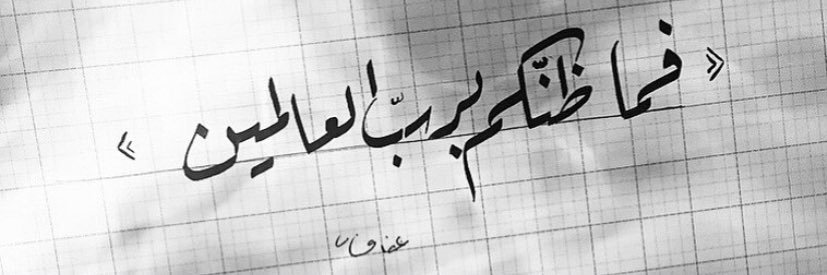 « فما ظنّكم بربّ العالمين »